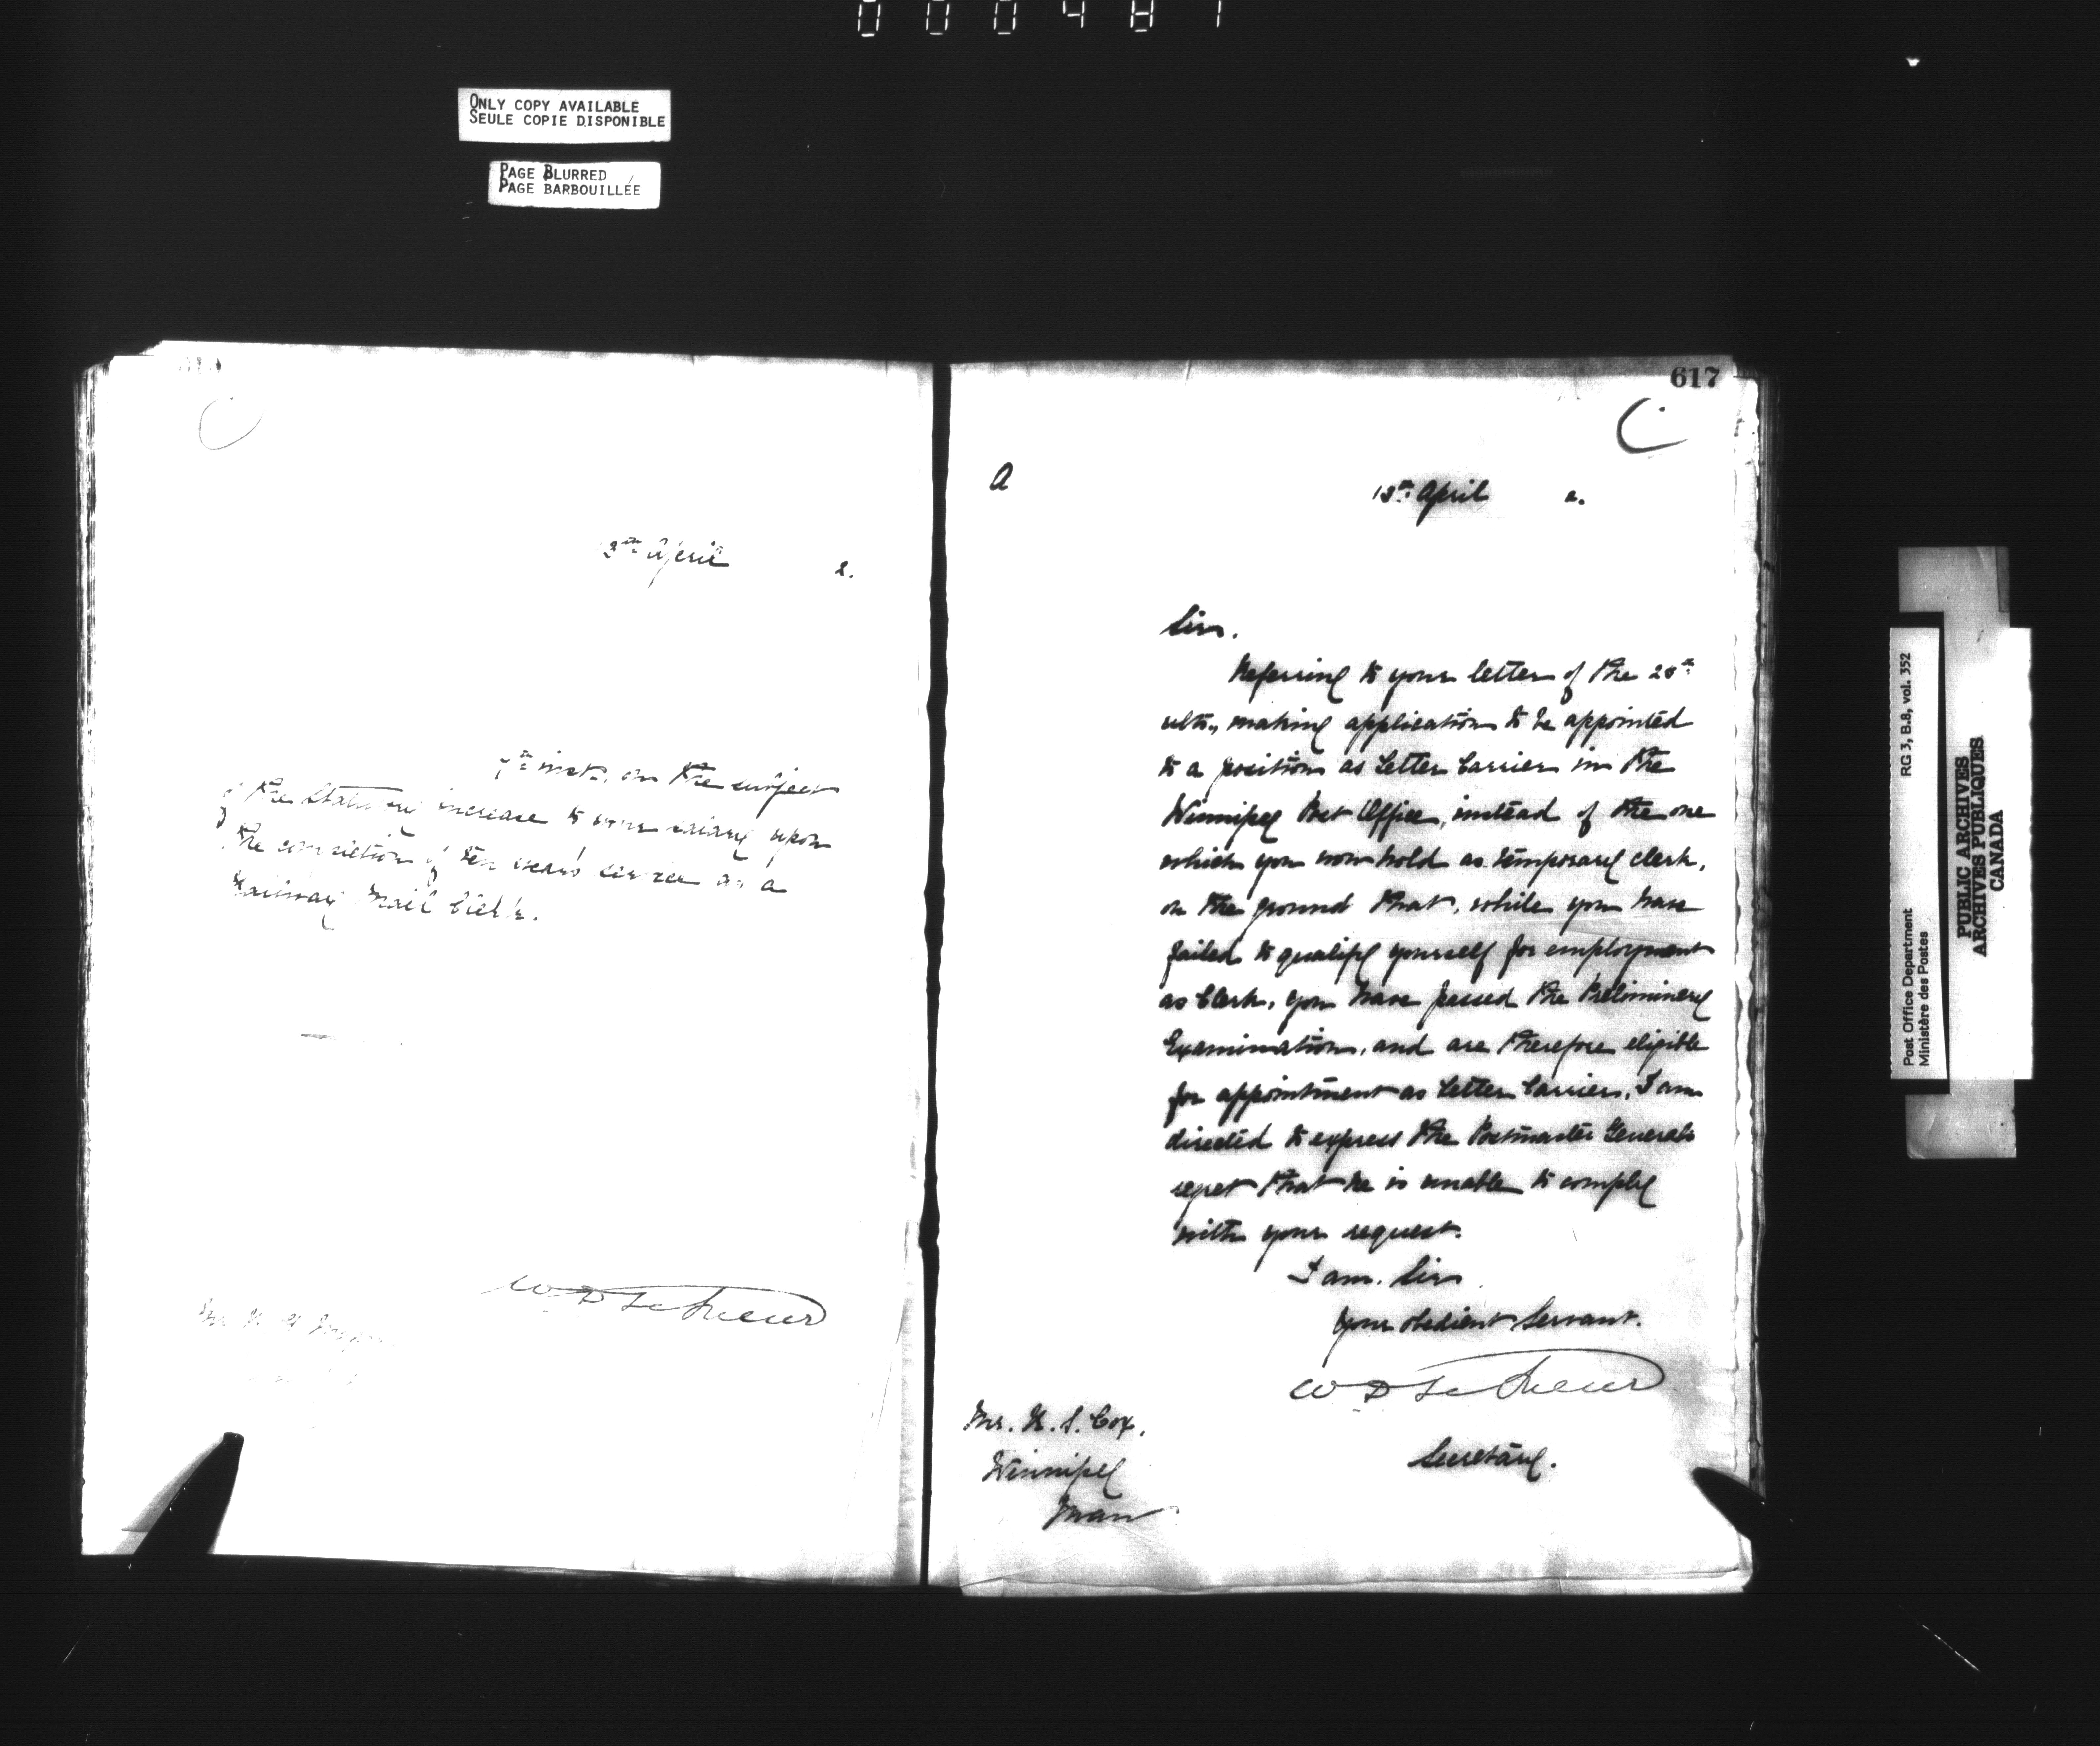 000481
ONLY COPY AVAILABLE
SEULE COPIE DISPONIBLE
PAGE BLURRED
PAGE BARBOUILLÉE
April 2.
inst. on the subject
of the Statutory increase to your salary upon
the completion of ten years' service as a
Railway Mail Clerk.
W D LeSueur
617
C
A
13th April 2.
Sir.
Referring to your letter of the 20th
ulto., making application to be appointed
to a position as Letter Carrier in the
Winnipeg Post Office, instead of the one
which you now hold as temporary clerk,
on the ground that, while you have
failed to qualify yourself for employment
as Clerk, you have passed the Preliminary
Examination, and are therefore eligible
for appointment as Letter Carrier, I am
directed to express the Postmaster General's
regret that he is unable to comply
with your request.
I am. Sir
Your obedient Servant.
W D LeSueur
Secretary.
Mr. H. S. Cox,
Winnipeg
Man
RG 3, B.8, vol. 352
Post Office Department
Ministère des Postes
PUBLIC ARCHIVES
ARCHIVES PUBLIQUES
CANADA